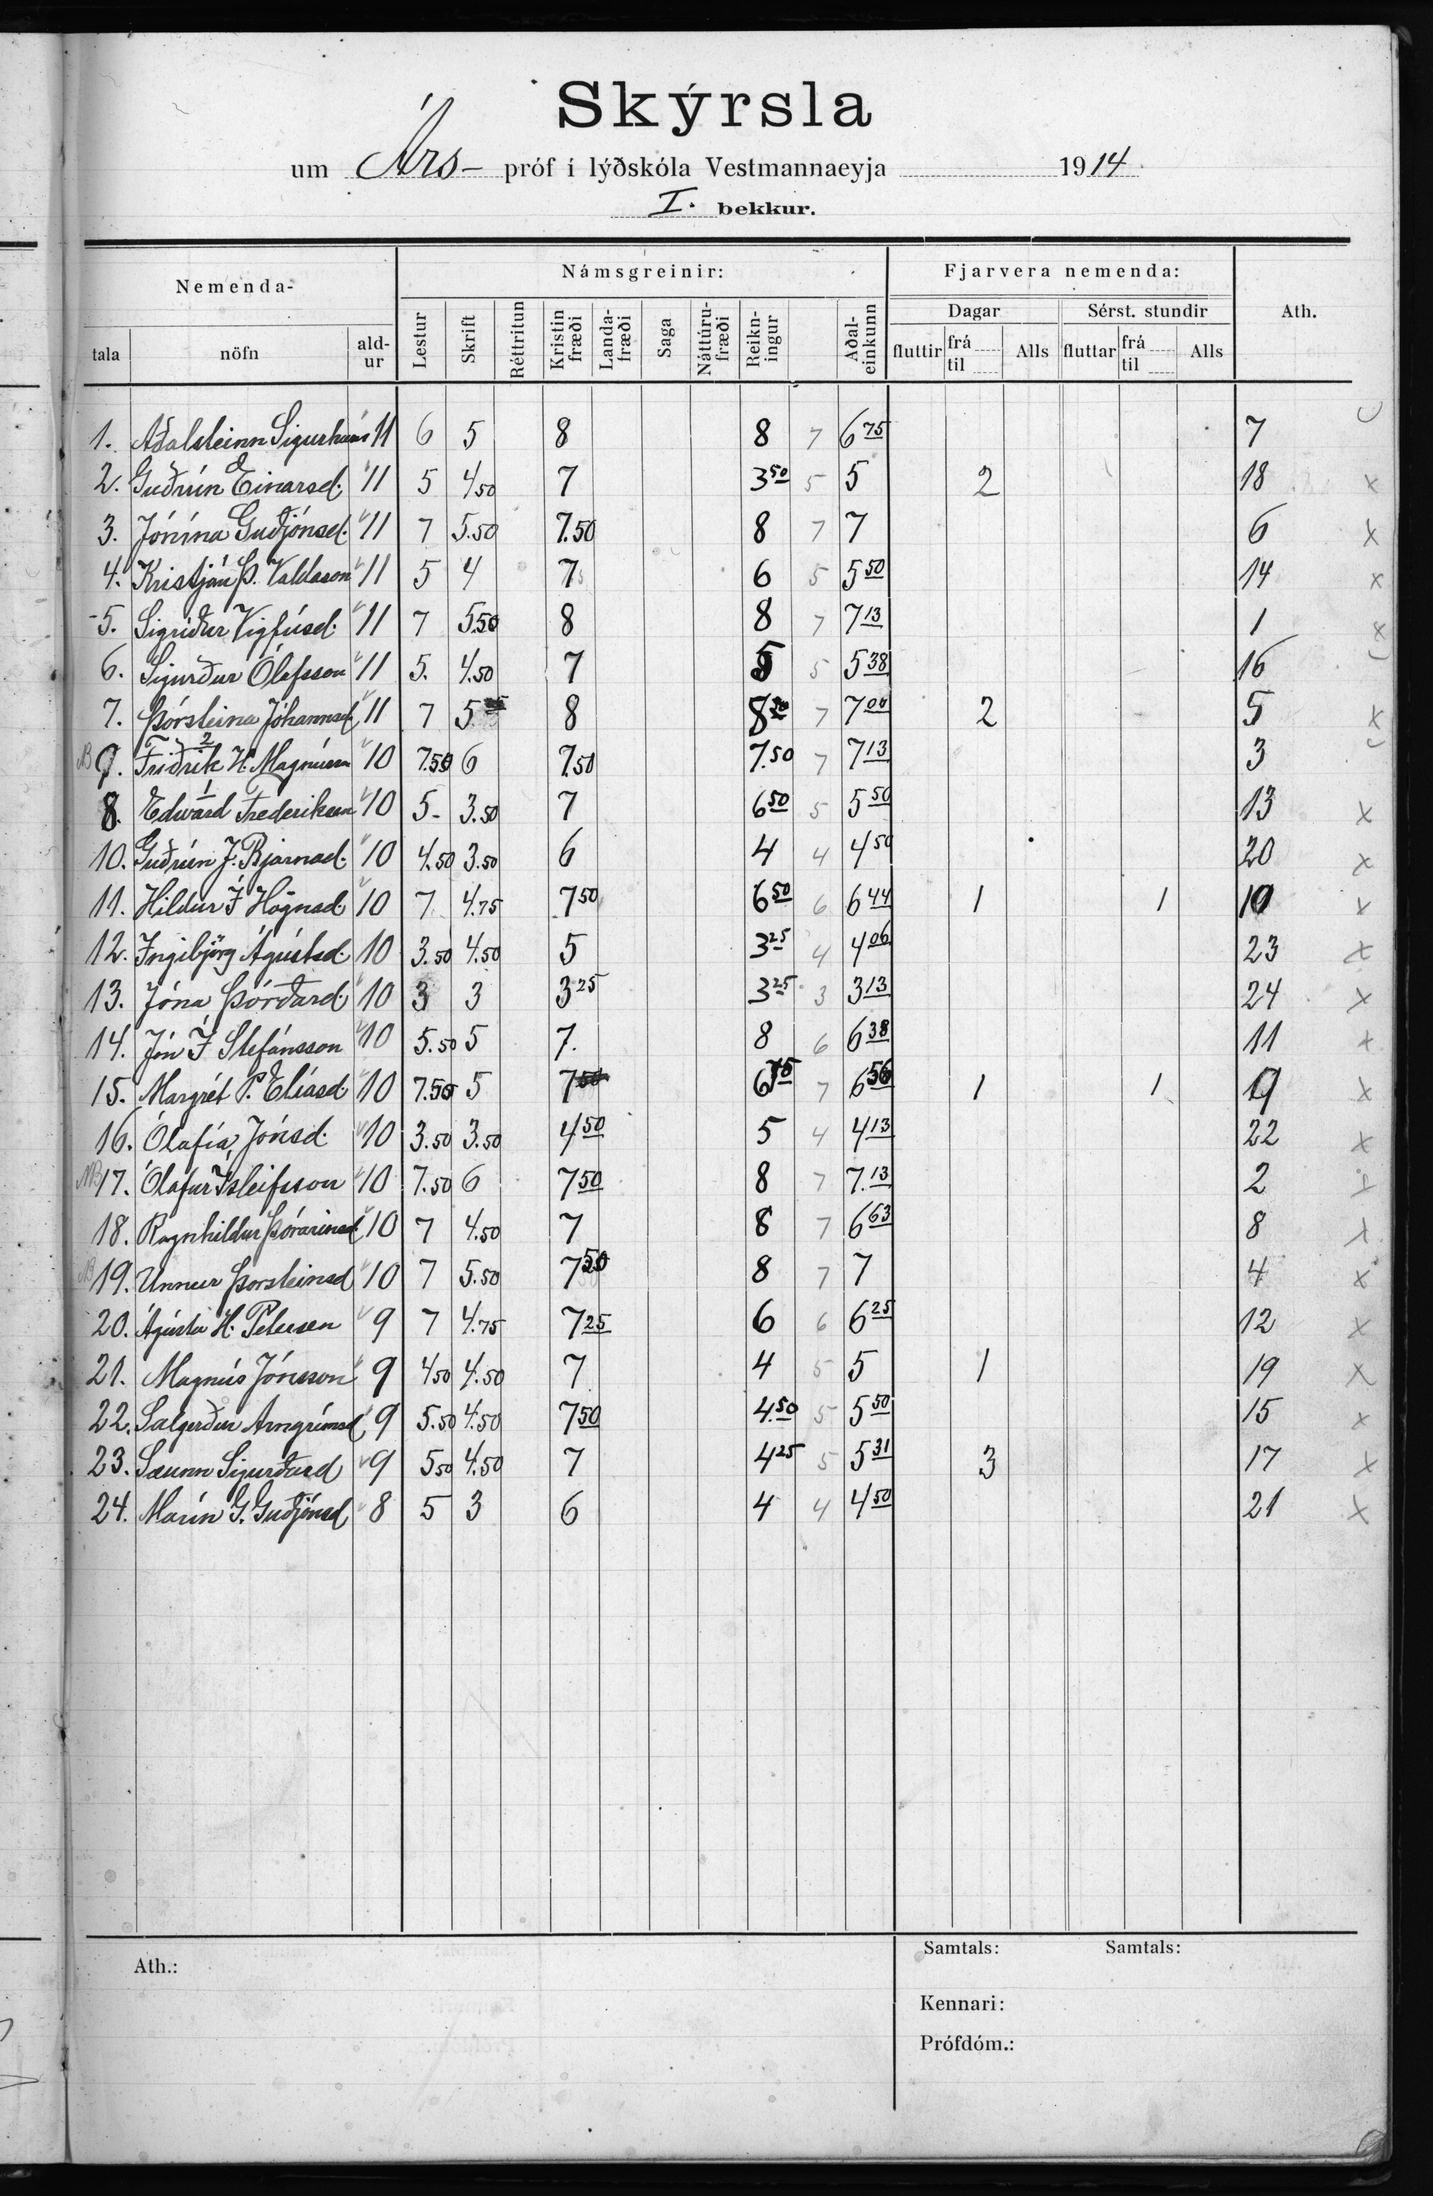 Skýrsla
um Árs- próf í lýðskóla Vestmannaeyja 1914
I. bekkur.
Nemenda- Námsgreinir: Fjarvera nemenda: Ath.
tala nöfn ald-ur Lestur Skrift Réttritun Kristin fræði Landa-fræði Saga Náttúru-fræði Reikn-ingur Aðal-einkunn Dagar Sérst. stundir
fluttir frá til Alls fluttar frá til Alls
1. Aðalsteinn Sigurhans 11 6 5 8 8 7 6 75 7
2. Guðrún Einarsd. 11 5 4 50 7 3 50 5 5 2 18 x
3. Jónína Guðjónsd. 11 7 5.50 7.50 8 7 7 6 x
4. Kristján Þ. Valdason 11 5 4 7 6 5 5 50 14 x
5. Sigríður Vigfúsd. 11 7 5.50 8 8 7 7 13 1 x
6. Sigurður Ólafsson 11 5. 4.50 7 5 5 5 38 16
7. Þórsteina Jóhannsd. 11 7 5 8 8 7 7 00 2 5 x
NB 9. Friðrik H. Magnússn 2 10 7.50 6 7.50 7.50 7 7 13 3
8. Edward Frederiksen 1 10 5- 3.50 7 6 50 5 5 50 13 x
10. Guðrún J. Bjarnad. 10 4.50 3.50 6 4 4 4 50 20 x
11. Hildur Í Högnad. 10 7 4.75 7 50 6 50 6 6 44 1 1 10 x
12. Ingibjörg Ágústsd. 10 3.50 4.50 5 3 25 4 4 06 23 x
13. Jóna Þórðard. 10 3 3 3 25 3 25 3 3 13 24 x
14. Jón Í Stefánsson 10 5.50 5 7. 8 6 6 38 11 x
15. Margrét P. Elíasd. 10 7.50 5 7 6 75 7 6 56 1 1 9 x
16. Ólafía Jónsd. 10 3.50 3.50 4 50 5 4 4 13 22 x
NB 17. Ólafur Ísleifsson 10 7.50 6 7 50 8 7 7.13 2
18. Ragnhildur Þórarinsd. 10 7 4.50 7 8 7 6 63 8 x
NB 19. Unnur Þorsteinsd 10 7 5.50 7 50 8 7 7 4 x
20. Ágústa H. Petersen 9 7 4.75 7 25 6 6 6 25 12 x
21. Magnús Jónsson 9 4 50 4.50 7 4 5 5 1 19 x
22. Salgerður Arngrímsd 9 5.50 4.50 7 50 4.50 5 5 50 15 x
23. Sæunn Sigurðard 9 5 50 4.50 7 4 25 5 5 31 3 17 x
24. Marín G. Guðjónsd 8 5 3 6 4 4 4 50 21 x
Ath.: Samtals: Samtals:
Kennari:
Prófdóm.: